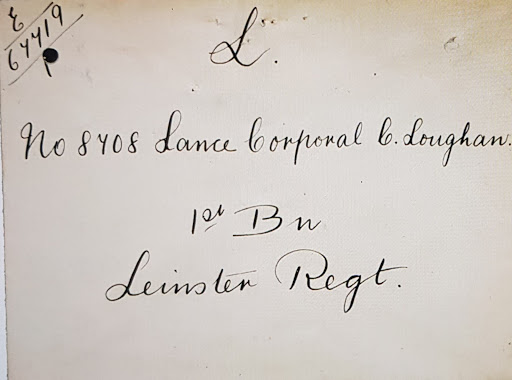 E
64419
1
L.
No 8408 Lance Corporal C. Loughan.
1st Bn
Leinster Regt.